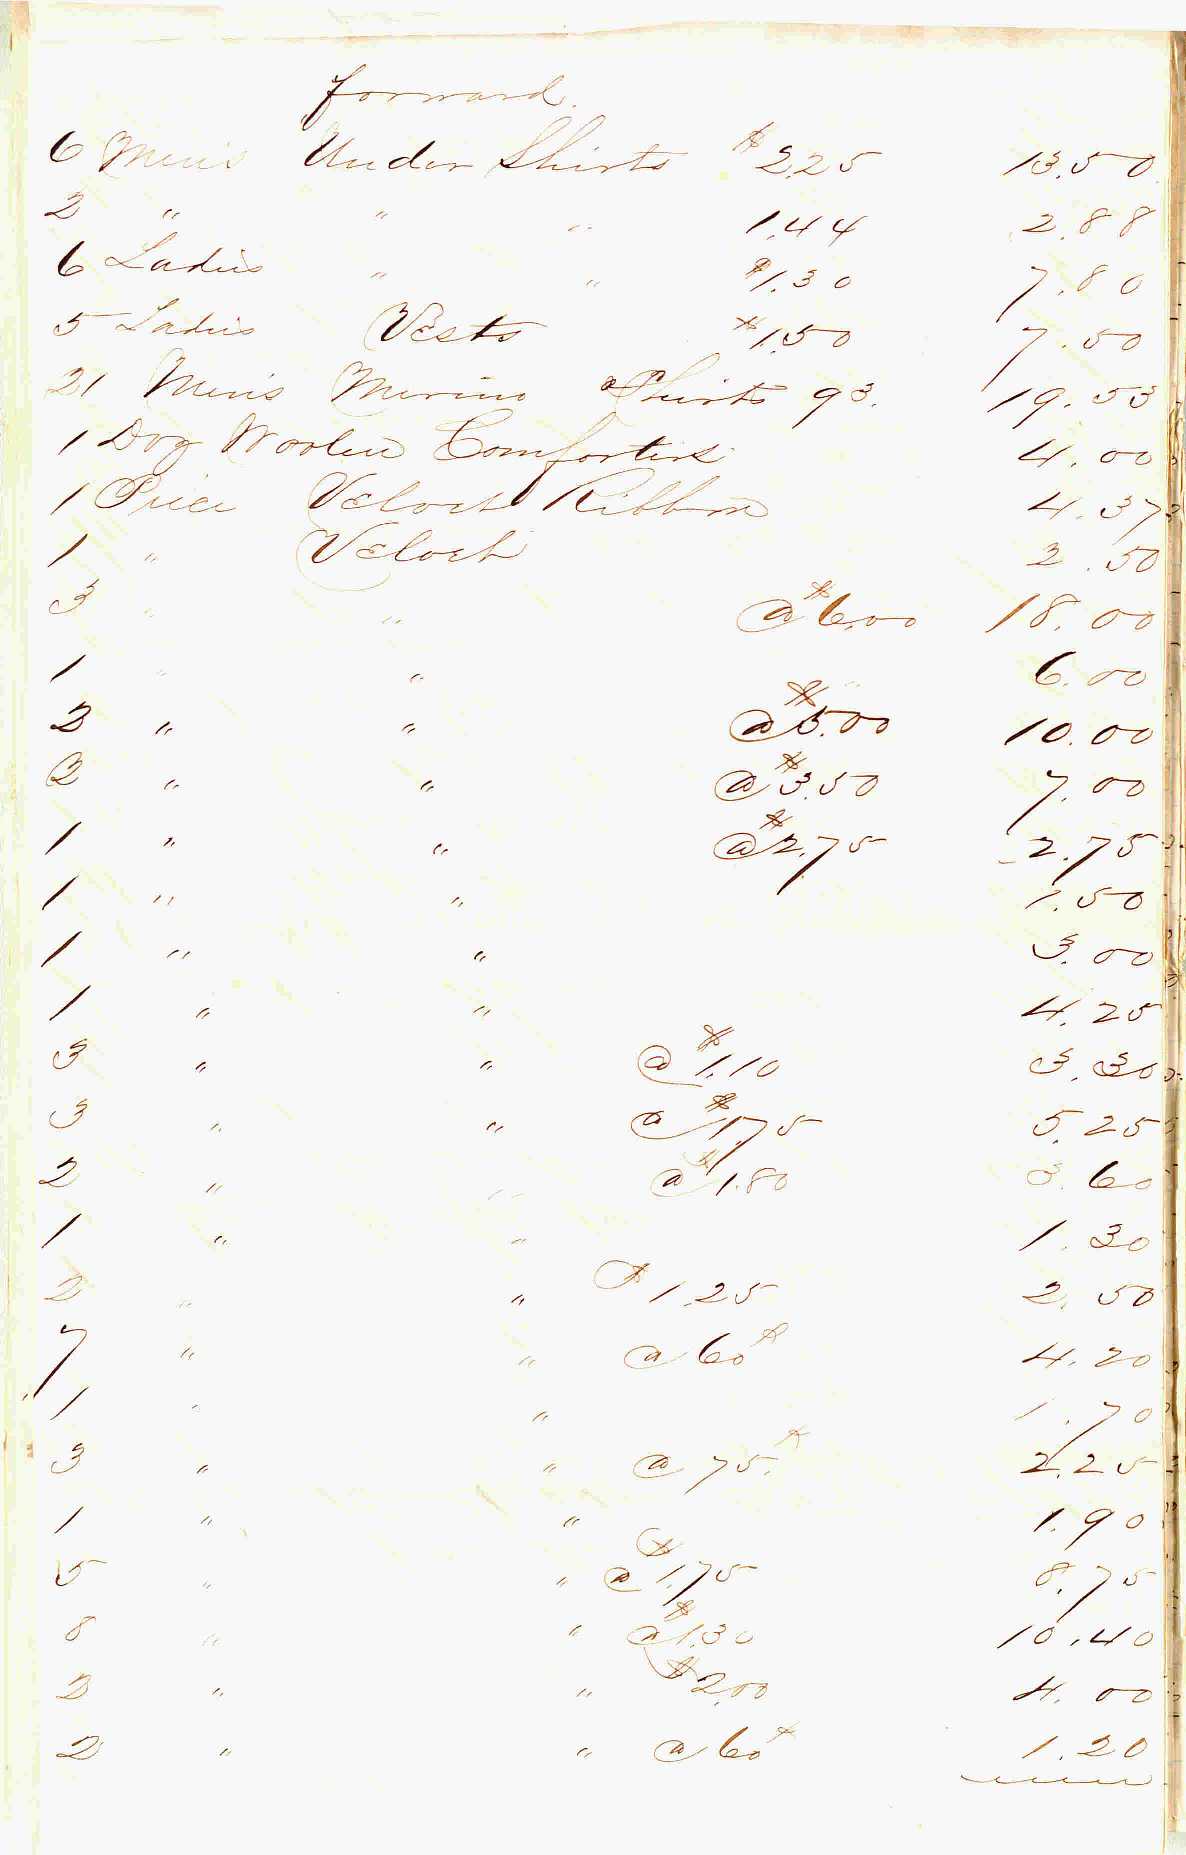 forward.
6 Men's Under Shirts $2.25 13.50
2 " " " 1.44 2.88
6 Ladies " " $1.30 7.80
5 Ladies Vests $1.50 7.50
21 Men's Merino Shirts 93. 19.53
1 Doz Woolen Comforters 4.00
1 Piece Velvet Ribbon 4.37
1 " Velvet 2.50
3 " " @ $6.00 18.00
1 " " 6.00
2 " " @ $5.00 10.00
2 " " @ $3.50 7.00
1 " " @ $2.75 2.75
1 " " 1.50
1 " " 3.00
1 " " 4.25
3 " " @ $1.10 3.30
3 " " @ $1.75 5.25
2 " " @ $1.80 3.60
1 " " 1.30
2 " " $1.25 2.50
7 " " @ 60 4.20
1 " " 1.70
3 " " @ 75. 2.25
1 " " 1.90
5 " " @ $1.75 8.75
8 " " @ $1.30 10.40
2 " " $2.00 4.00
2 " " @ 60 1.20